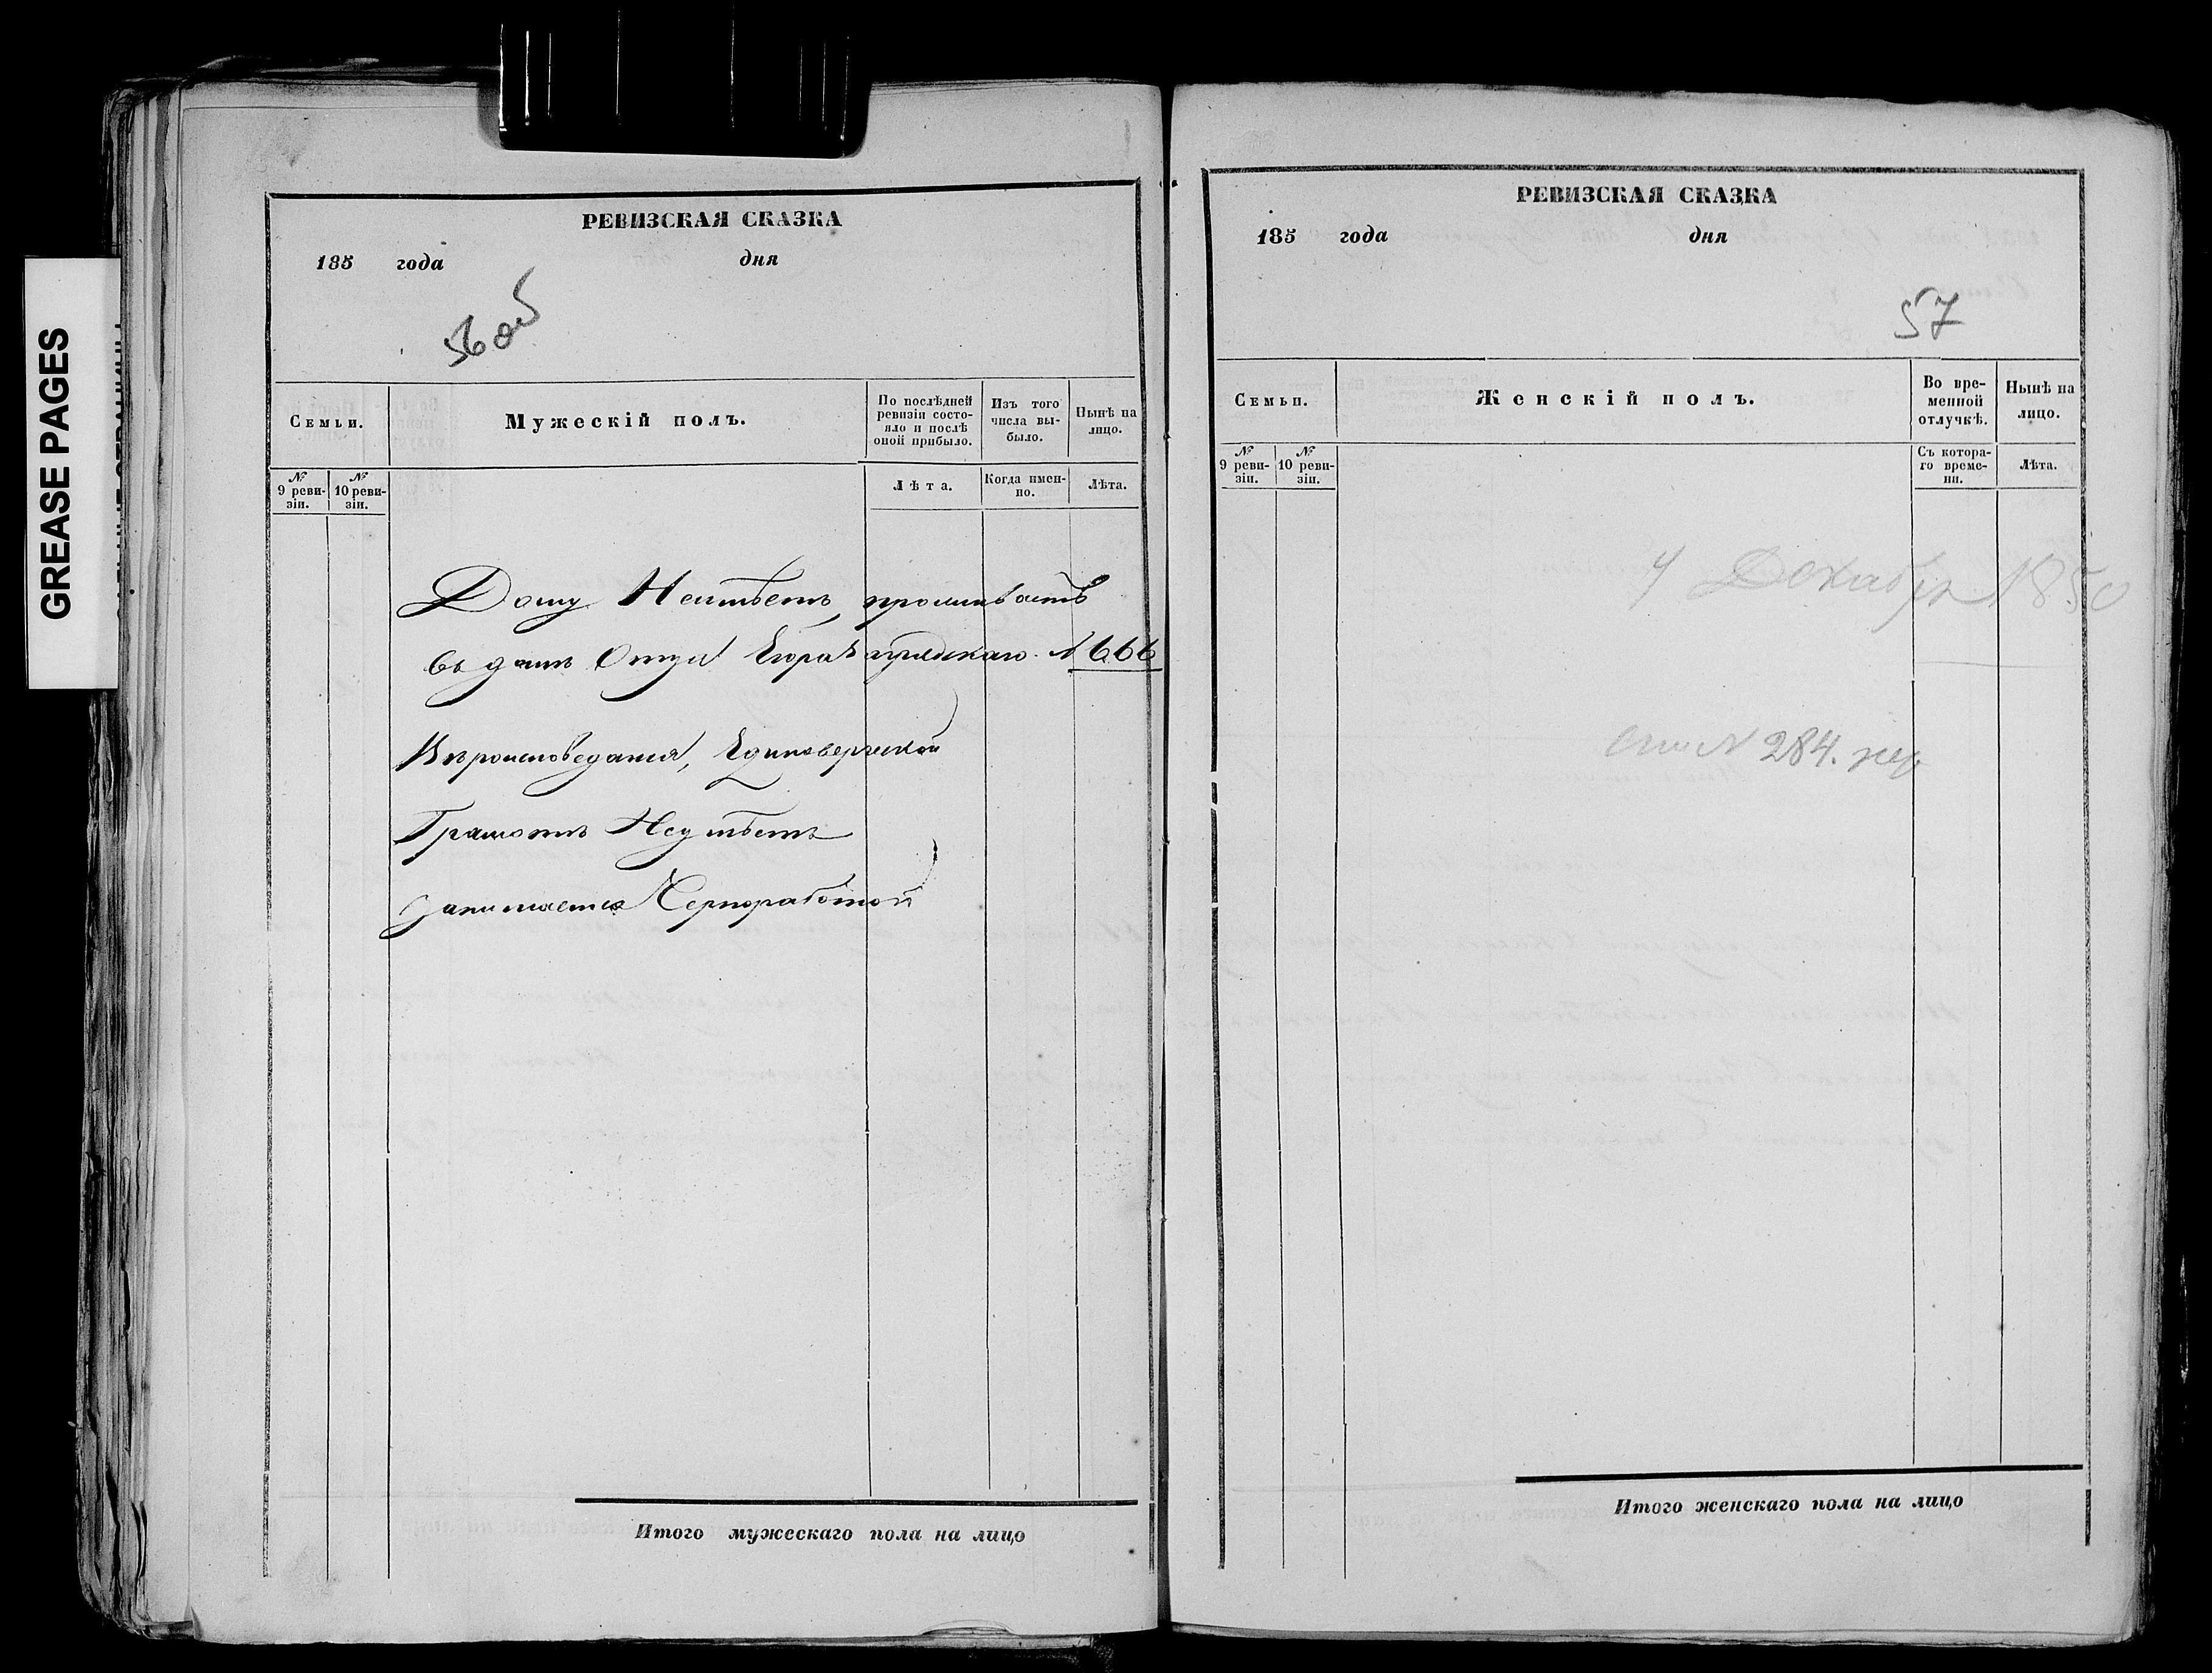 GREASE PAGES
РЕВИЗСКАЯ СКАЗКА
185 года дня
56 об
Семьи.
Мужескій полъ.
По послѣдней ревизіи состояло и послѣ оной прибыло.
Изъ того числа выбыло.
Нынѣ на лицо.
№ 9 ревизіи.
№ 10 ревизіи.
Лѣта.
Когда именно.
Лѣта.
Дому Неимѣетъ, проживаетъ
въ домѣ Отца №666
Вѣроисповеданія, Единоверческой
Грамотѣ Неумѣетъ
занимается Черноработой
Итого мужескаго пола на лицо
РЕВИЗСКАЯ СКАЗКА
185 года дня
57
Семьи.
Женскій полъ.
Во временной отлучкѣ.
Нынѣ на лицо.
№ 9 ревизіи.
№ 10 ревизіи.
Съ котораго времени.
Лѣта.
4 Декабря 1850
№ 284.
Итого женскаго пола на лицо